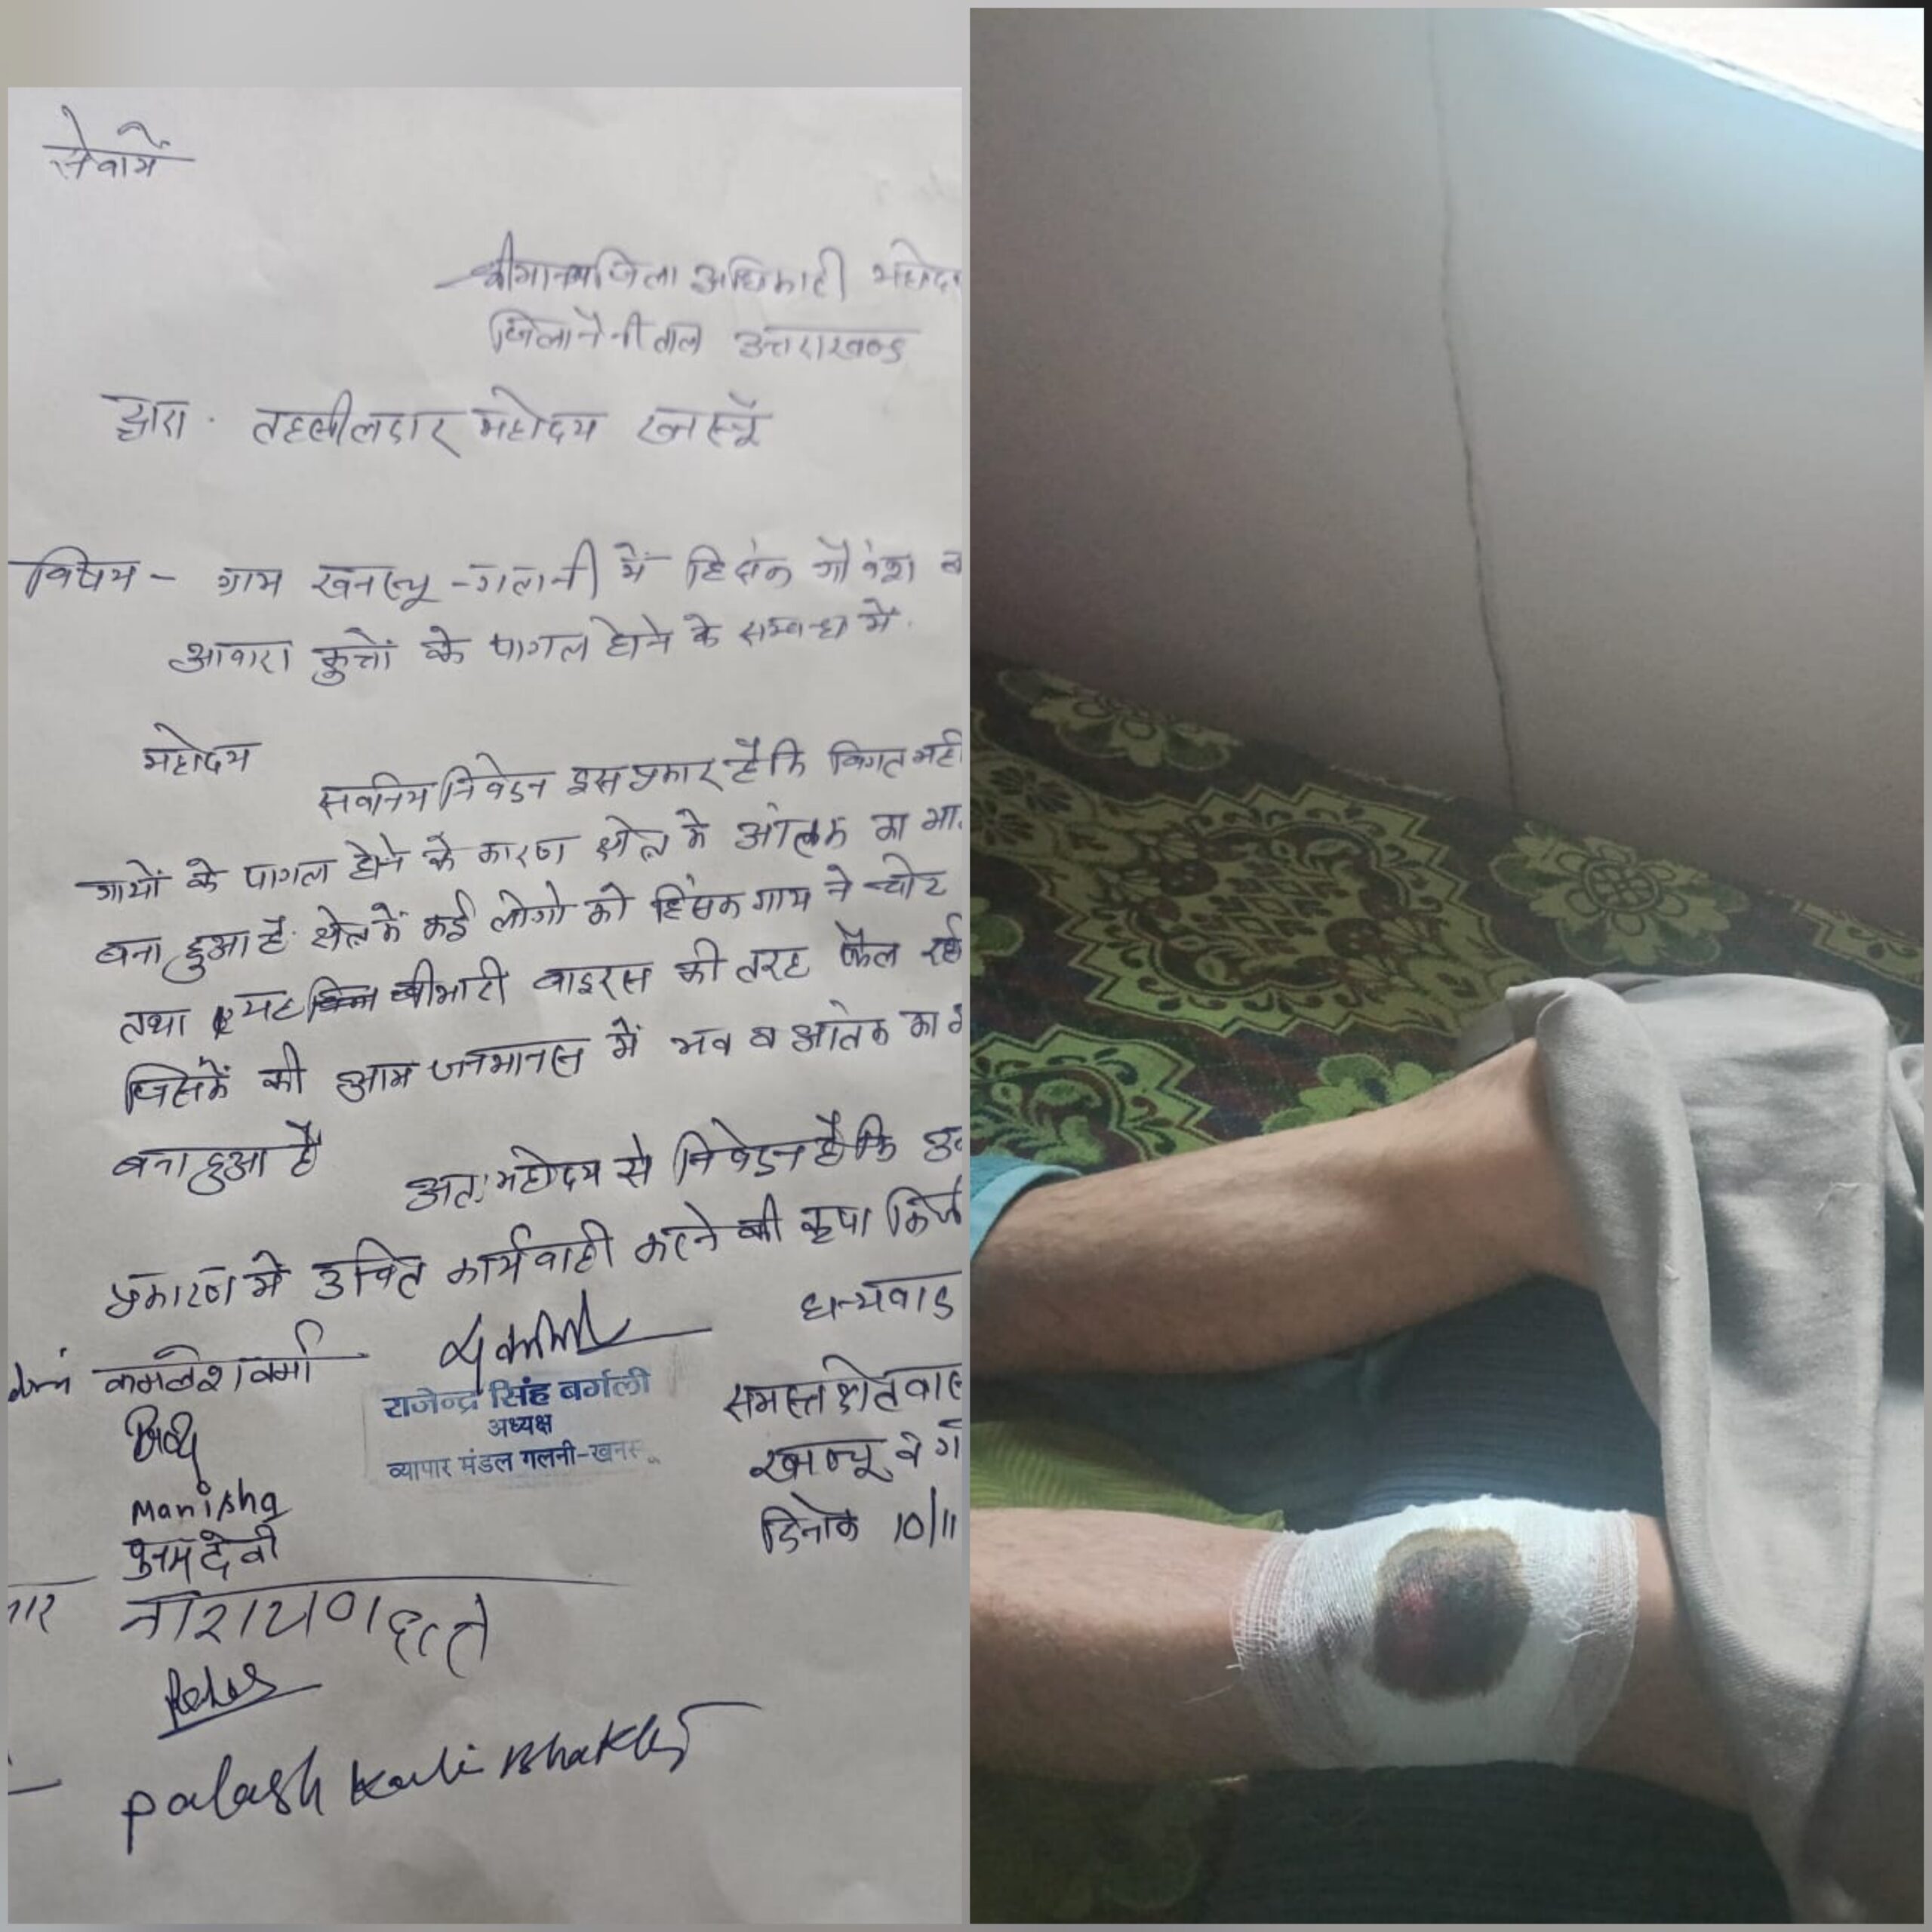 सेवामें
श्रीमान जिला अधिकारी महोदय
जिला नैनीताल उत्तराखण्ड
द्वारा · तहसीलदार महोदय खनस्यूँ
विषय - ग्राम खनस्यू - गलनी में हिंसक गौवंश व
आवारा कुत्तों के पागल होने के सम्बन्ध में.
महोदय
सविनय निवेदन इस प्रकार है कि विगत
गायों के पागल होने के कारण क्षेत्र में आंतक का
बना हुआ है. क्षेत्र में कई लोगो को हिंसक गाय ने चोट
तथा यह बीमारी वाइरस की तरह फैल रही
जिसमें की आम जनमानस में भय व आंतक का
बना हुआ है
अतः महोदय से निवेदन है कि
प्रकारण में उचित कार्यवाही करने की कृपा
धन्यवाद
कमलेश वर्मा
राजेन्द्र सिंह बर्गली
अध्यक्ष
व्यापार मंडल गलनी-खनस्यू
समस्त क्षेत्रवा
खनस्यू व ग
दिनांक 10/11
Manisha
पुनम देवी
नारायण दत्त